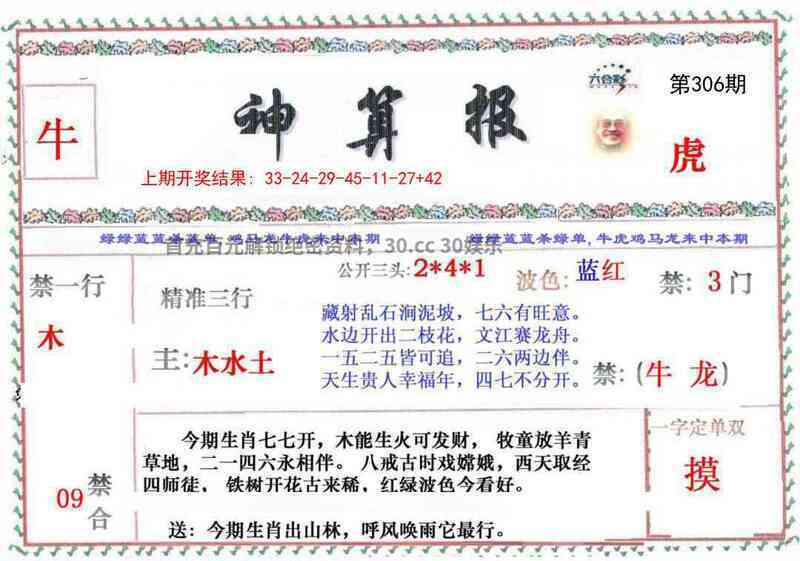 六合彩
第306期
牛
神算报
虎
上期开奖结果：33-24-29-45-11-27+42
绿绿蓝蓝杀蓝单，鸡马龙牛虎来中本期
绿绿蓝蓝杀绿单，牛虎鸡马龙来中本期
首充百元解锁绝密资料，30.cc 30娱乐
禁一行
木
精准三行
主：木水土
公开三头：2*4*1
波色：蓝红
禁：3门
藏射乱石涧泥坡，七六有旺意。
水边开出二枝花，文江赛龙舟。
一五二五皆可追，二六两边伴。
天生贵人幸福年，四七不分开。
禁：(牛 龙)
09
禁合
今期生肖七七开，木能生火可发财， 牧童放羊青
草地，二一四六永相伴。 八戒古时戏嫦娥，西天取经
四师徒， 铁树开花古来稀，红绿波色今看好。
送：今期生肖出山林，呼风唤雨它最行。
一字定单双
摸